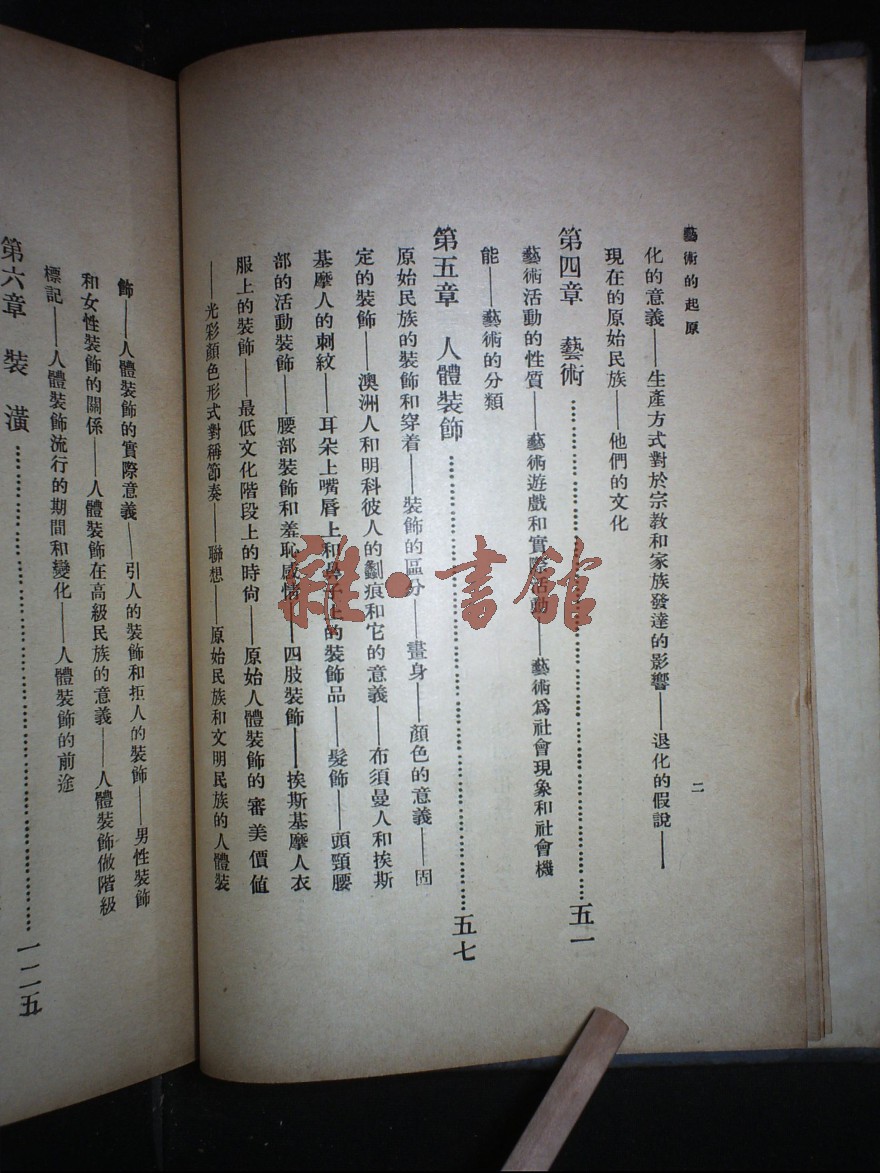 藝術的起原
二
化的意義——生產方式對於宗教和家族發達的影響——退化的假說——
現在的原始民族——他們的文化
第四章 藝術……五一
藝術活動的性質——藝術遊戲和實際活動——藝術爲社會現象和社會機
能——藝術的分類
第五章 人體裝飾……五七
原始民族的裝飾和穿着——裝飾的區分——畫身——顏色的意義——固
定的裝飾——澳洲人和明科彼人的劙痕和它的意義——布須曼人和挨斯
基摩人的刺紋——耳朵上嘴唇上和鼻子上的裝飾品——髮飾——頭頸腰
部的活動裝飾——腰部裝飾和羞恥感情——四肢裝飾——挨斯基摩人衣
服上的裝飾——最低文化階段上的時尙——原始人體裝飾的審美價值
——光彩顏色形式對稱節奏——聯想——原始民族和文明民族的人體裝
飾——人體裝飾的實際意義——引人的裝飾和拒人的裝飾——男性裝飾
和女性裝飾的關係——人體裝飾在高級民族的意義——人體裝飾做階級
標記——人體裝飾流行的期間和變化——人體裝飾的前途
第六章 裝潢……一二五
雜·書館